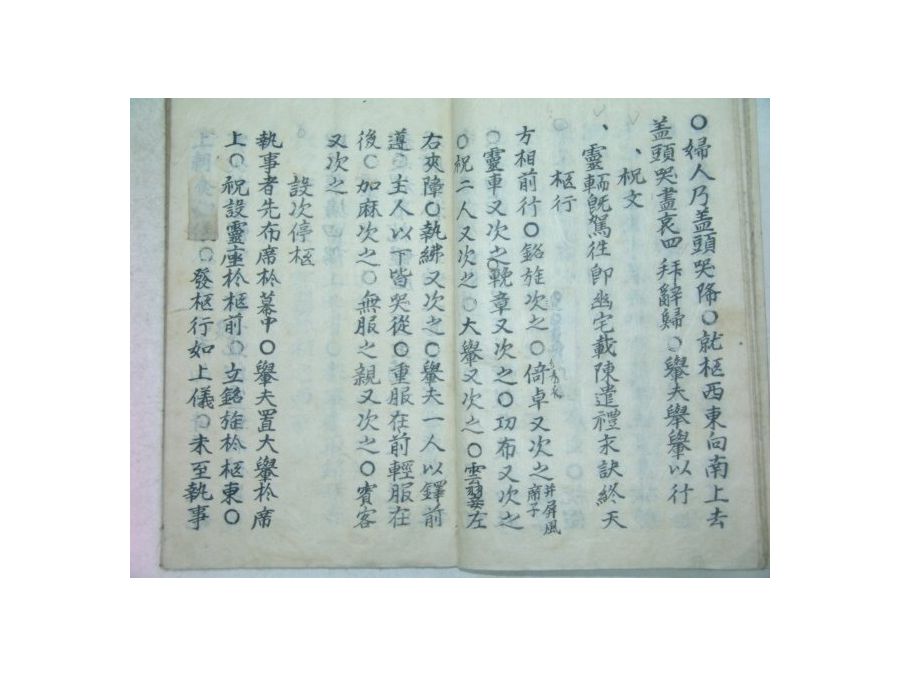 ○婦人乃盖頭哭降○就柩西東向南上去
盖頭哭盡哀四拜辭歸○轝夫擧轝以行
、祝文
、靈輀旣駕徃卽幽宅載陳遣禮永訣終天
柩行
方相前行○銘旌次之○倚卓又次之并屏風席子
○靈車又次之○輓章又次之○功布又次之
○祝二人又次之○大轝又次之○雲翣左
右夾障○執紼又次之○轝夫一人以鐸前
遵○主人以下皆哭從○重服在前輕服在
後○加麻次之○無服之親又次之○賓客
又次之
設次停柩
執事者先布席於幕中○轝夫置大轝於席
上○祝設靈座於柩前○立銘旌於柩東○
上○發柩行如上儀○未至執事